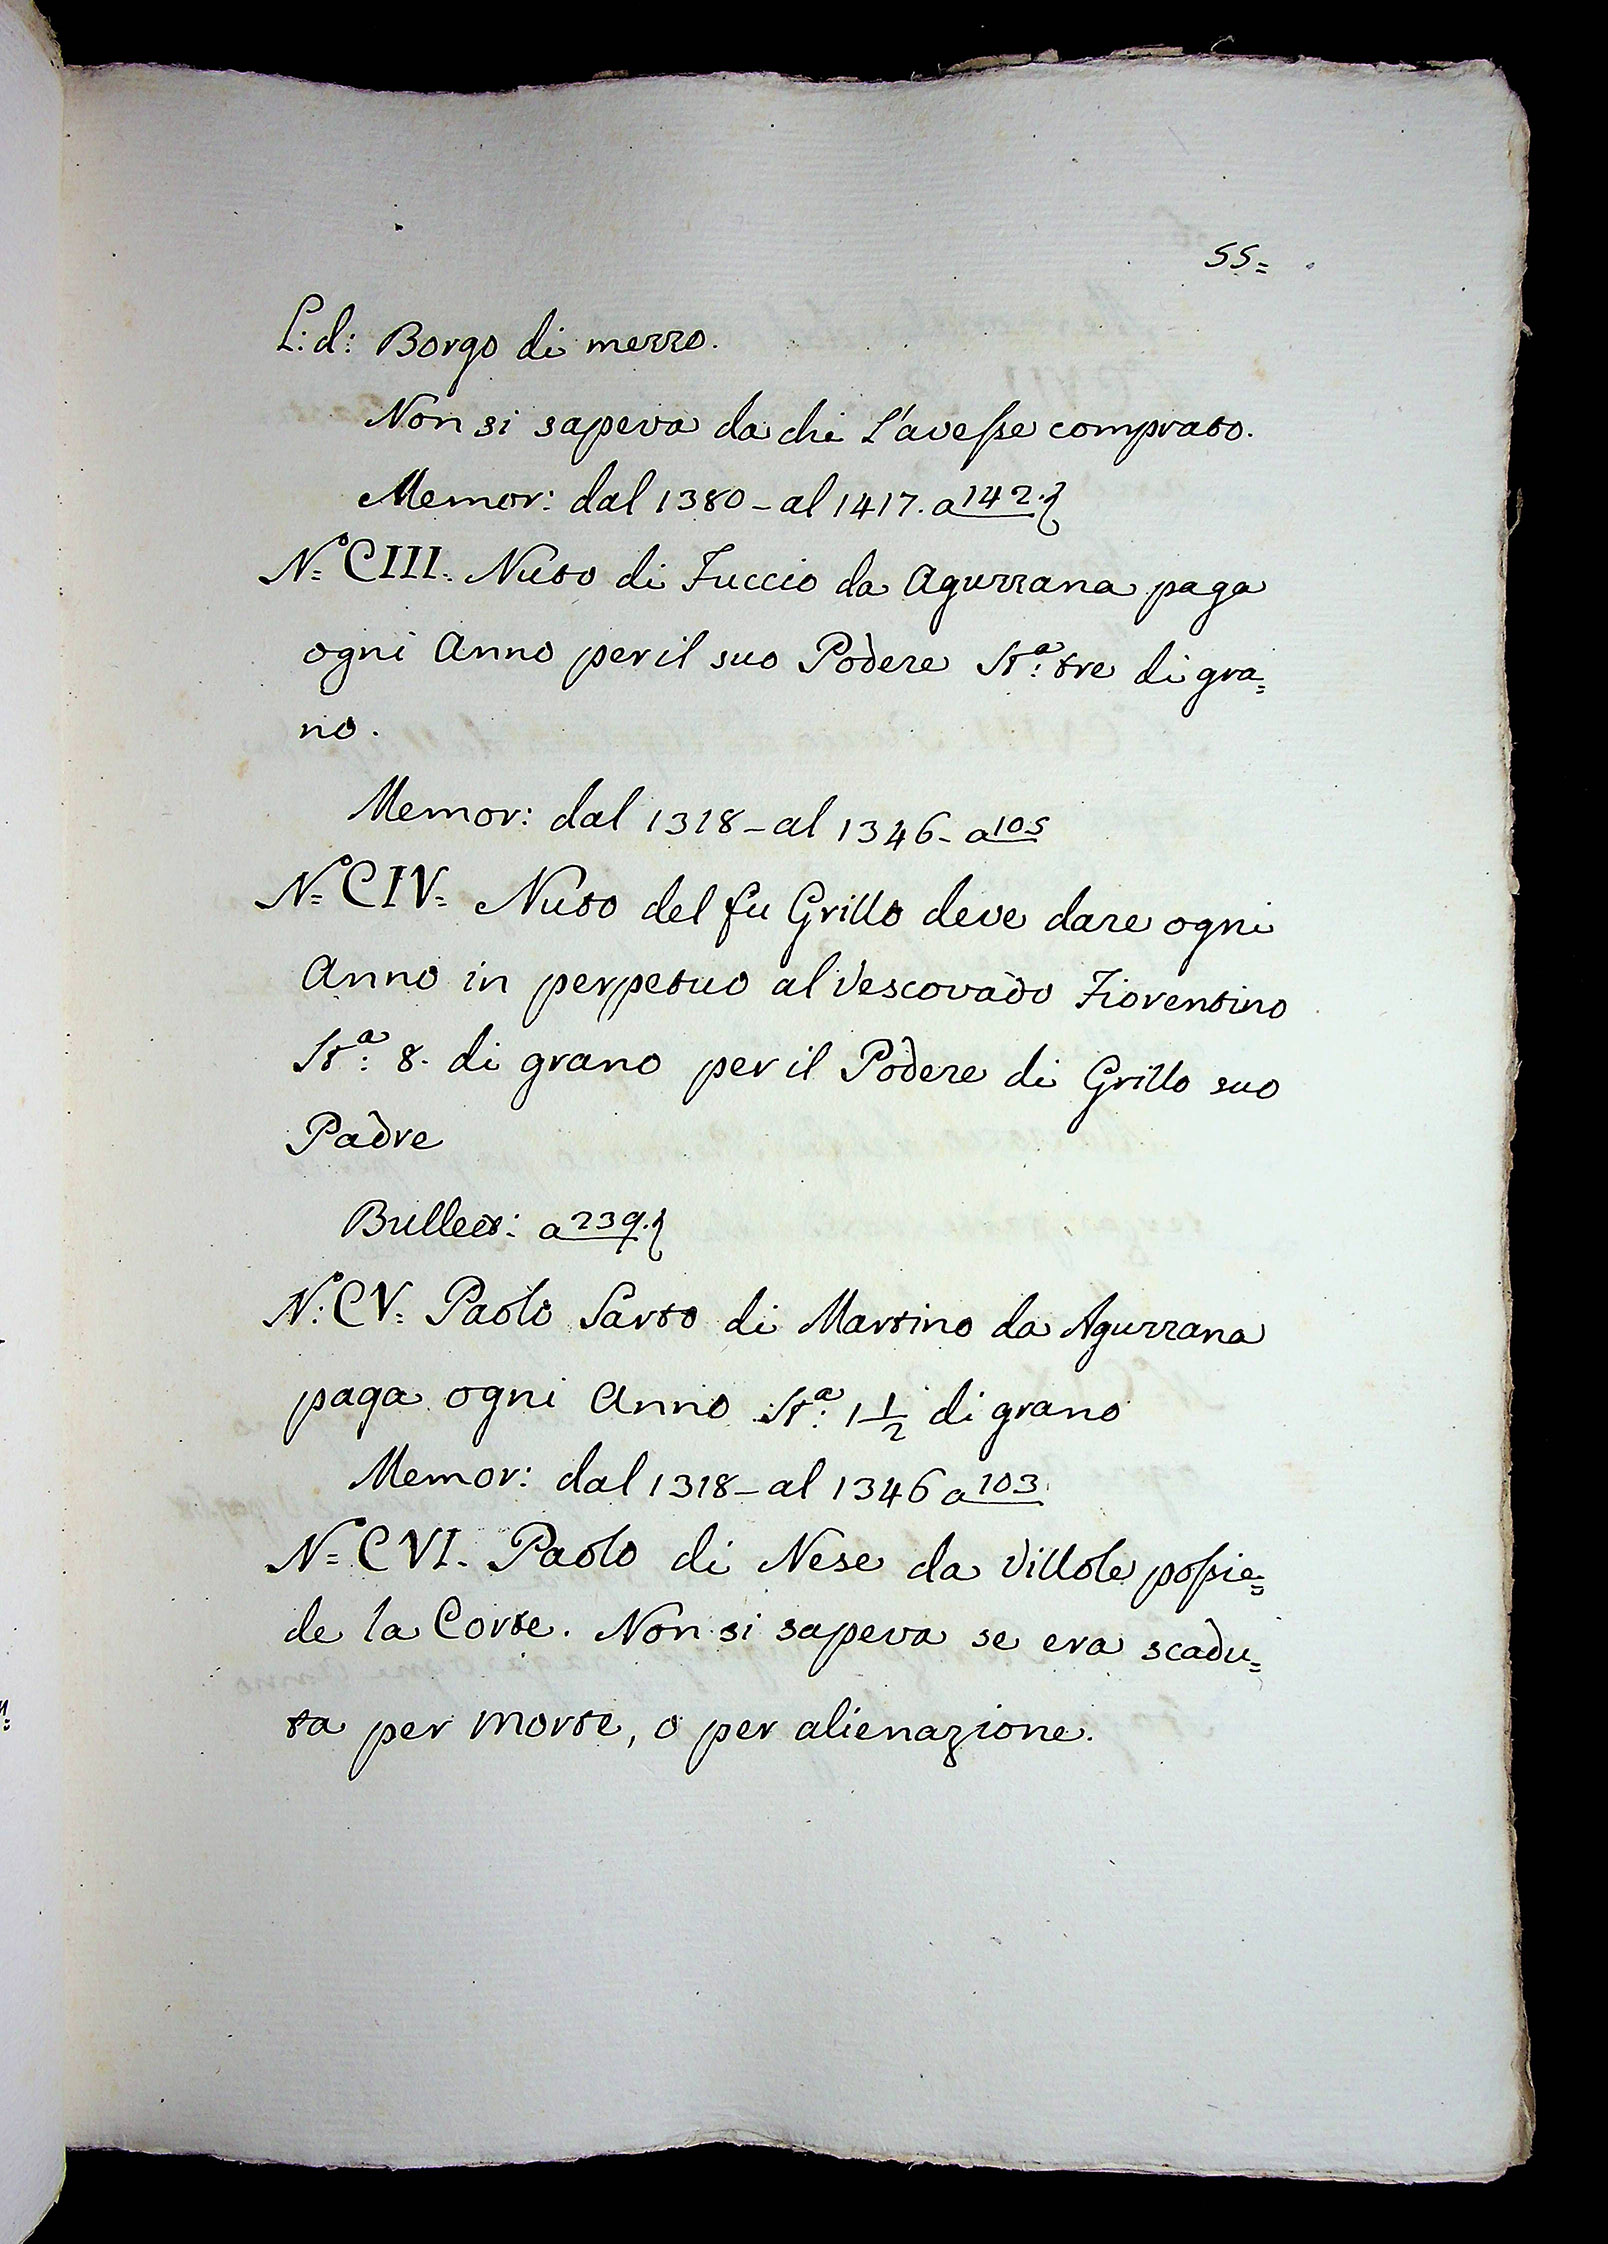 55=
L: d: Borgo di mezzo.
Non si sapeva da chi l'avesse comprato.
Memor: dal 1380 - al 1417. a 142.
N.º CIII. Nuto di Fuccio da Aguzzana paga
ogni Anno per il suo Podere Stª: tre di gra=
no.
Memor: dal 1318 - al 1346 - a 105
N.º CIV= Nuto del fu Grillo deve dare ogni
Anno in perpetuo al Vescovado Fiorentino
Stª: 8. di grano per il Podere di Grillo suo
Padre
Bullett: a 239.
N.º CV= Paolo Sarto di Martino da Aguzzana
paga ogni Anno Stª: 1 1/2 di grano
Memor: dal 1318 - al 1346 a 103
N.º CVI. Paolo di Nese da Villole possie=
de la Corte. Non si sapeva se era scadu=
ta per morte, o per alienazione.